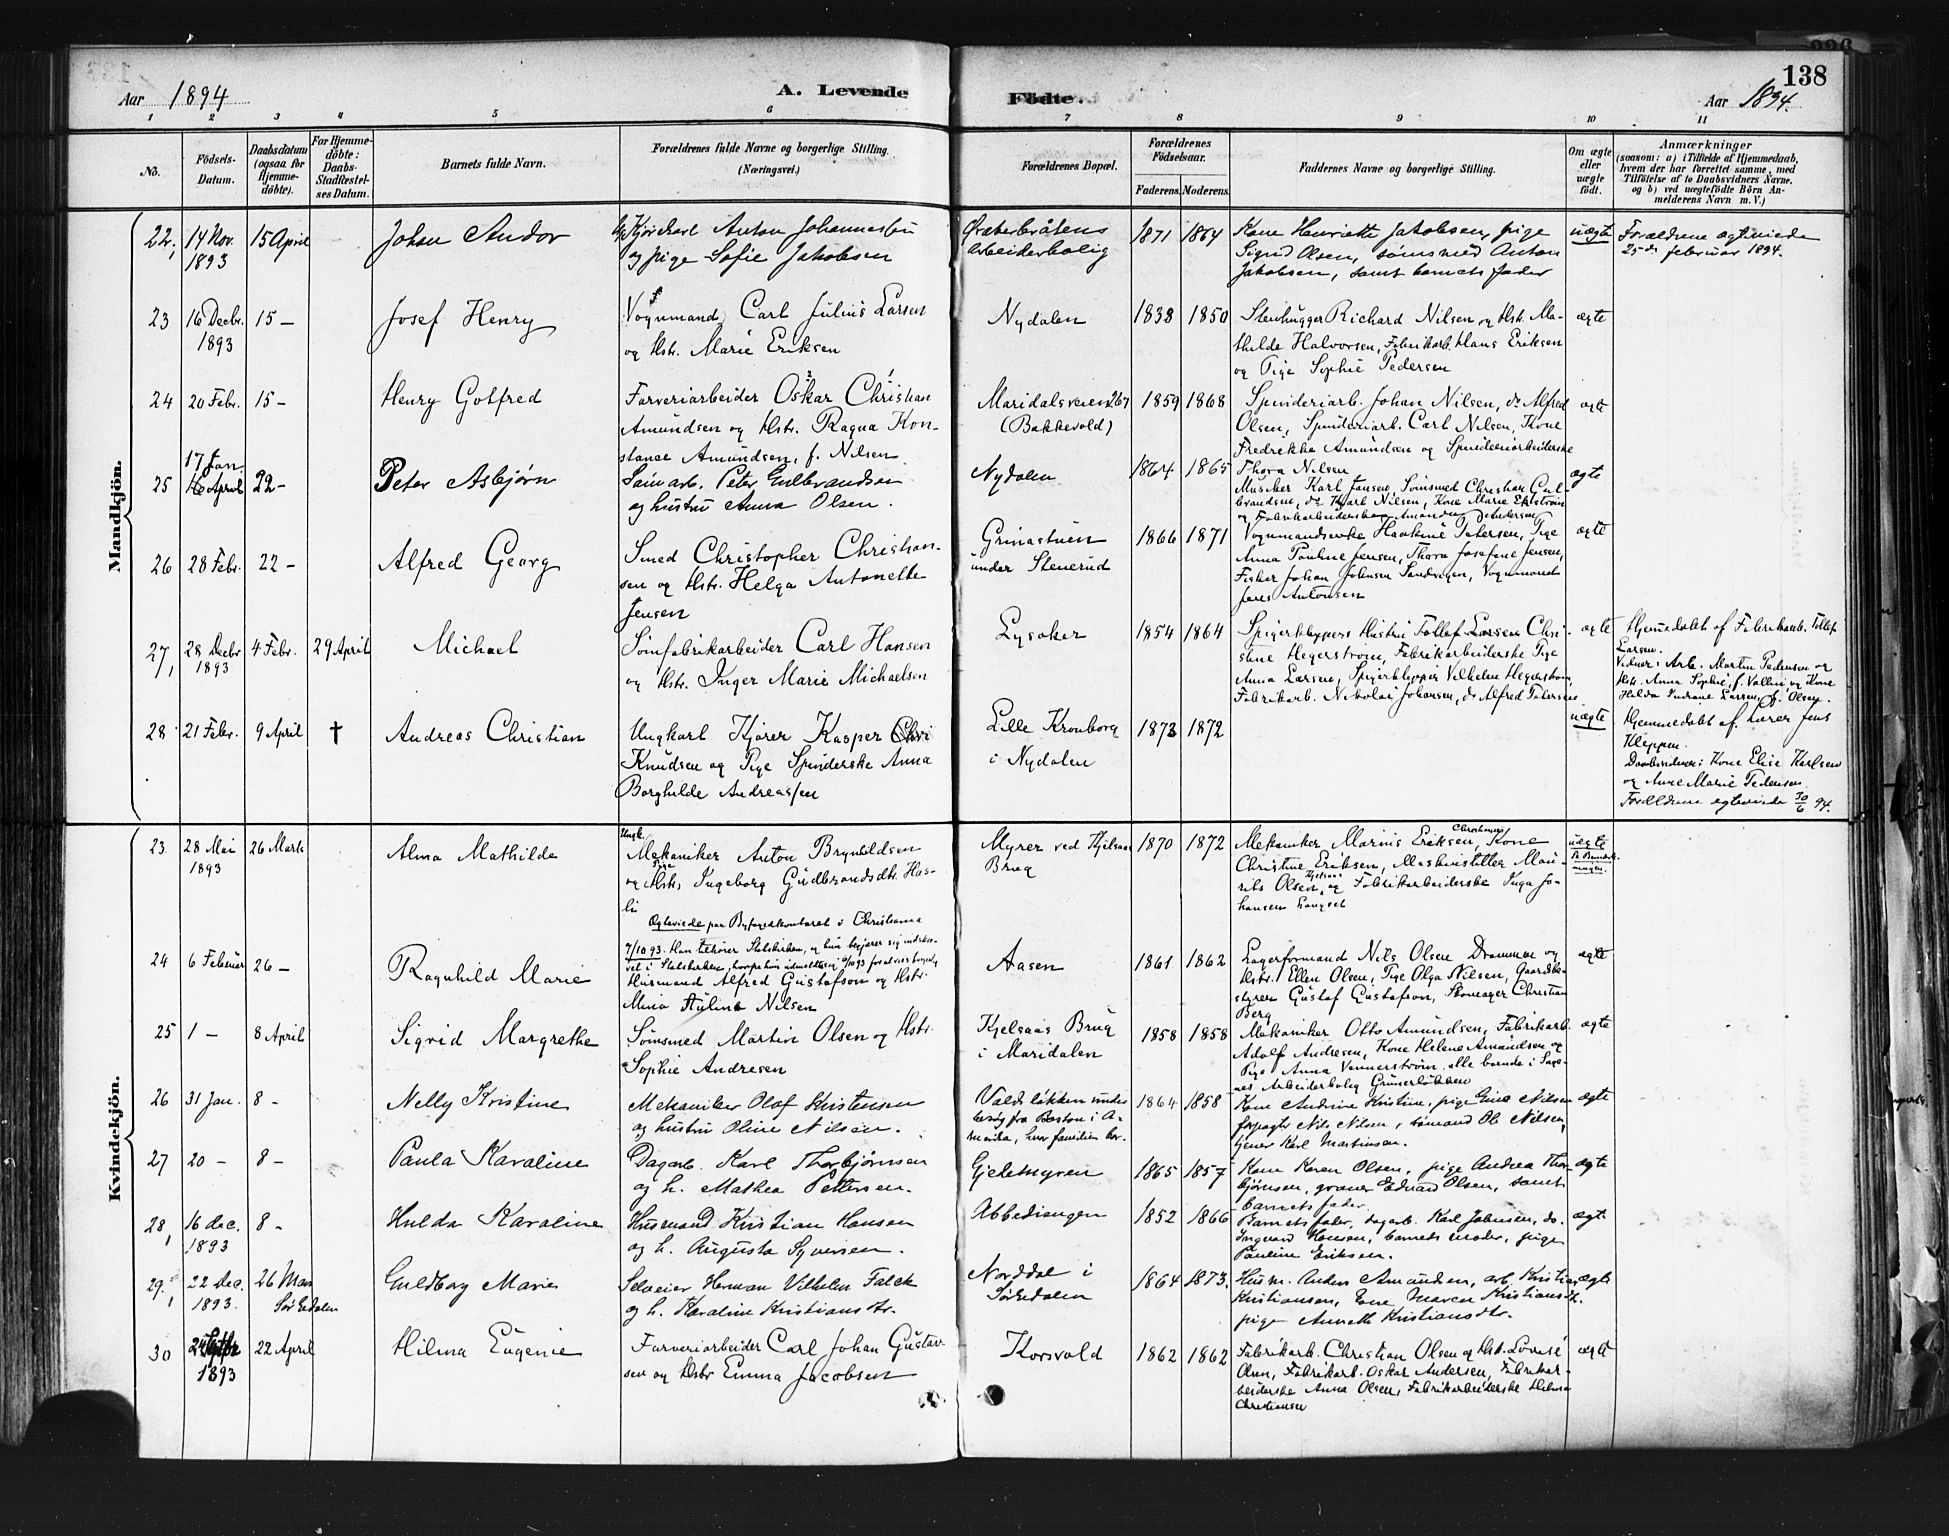 138
Aar 1894 A. Levende Födte. Aar 1894.
1 2 3 4 5 6 7 8 9 10 11
No.
Födsels-
Datum.
Daabsdatum
(ogsaa for
Hjemme-
döbte).
For Hjemme-
döbte:
Daabs-
Stadfæstel-
ses Datum.
Barnets fulde Navn.
Forældrenes fulde Navne og borgerlige Stilling.
(Næringsvei.)
Forældrenes Bopæl.
Forældrenes
Födselsaar.
Faderens. Moderens.
Faddernes Navne og borgerlige Stilling.
Om ægte
eller
uægte
födt.
Anmærkninger
(saasom: a) i Tilfælde af Hjemmedaab,
hvem der har forrettet samme, med
Tilföielse af to Daabsvidners Navne.
og b) ved uægtefödte Börn An-
melderens Navn m. V.)
Mandkjön.
22, 14 Nov. 1893 15 April Johan Andor
Kjørekarl Anton Johannesen
og pige Sofie Jakobsen
Arbeiderbolig
1871 1864
Kone Henriette Jakobsen, pige
Sigrid Olsen, sømsmed Anton
Jakobsen, samt barnets fader
uægte
Forældrene ægteviede
25de februar 1894.
23 16 Decbr. 1893 15 – Josef Henry
Vognmand Carl Julius Larsen
og Hstr. Marie Eriksen
Nydalen
1838 1850
Stenhugger Richard Nilsen og Hstr. Ma-
thilde Halvorsen, Fabrikarb. Hans Eriksen
og Pige Sophie Pedersen
ægte
24 20 Febr. 15 – Henry Gotfred
Farveriarbeider Oskar Christian
Amundsen og Hstr. Ragna Kon-
stance Amundsen, f. Nilsen
Maridalsveien 267
(Bakkevold)
1859 1868
Spinderiarb. Johan Nilsen, do Alfred
Olsen, Spinderiarb. Carl Nilsen, Kone
Fredrikke Amundsen og Spinderiarbeiderske
Thora Nilsen
ægte
25 17 Jan. 22 – Peter Asbjørn
Sømarb. Peter Gulbrandsen
og hustru Anna Olsen.
Nydalen
1864 1865
Musiker Karl Jansen, Sømsmed Christian Gul-
brandsen, do Karl Nilsen, Kone Marie Ekstrøm
og Fabrikarbeiderske Amanda Andersen
ægte
26 28 Febr. 22 – Alfred Georg
Smed Christopher Christian-
sen og Hstr. Helga Antonette
Jensen
Grinastuen
under Stenerud
1866 1871
Vognmandsenke Haakine Petersen, Pige
Anna Pauline Jensen, Thora Josefene Jensen,
Fisker Johan Johnsen Sandvigen, Vognmand
Jens Antonsen
ægte
27, 28 Decbr 1893 4 Febr. 29 April Michael
Sømfabrikarbeider Carl Hansen
og Hstr. Inger Marie Michaelsen
Lysaker
1854 1864
Spigerklippers Hustru Tollef Larsen Chri-
stine Hegerstrøm, Fabrikarbeiderske Pige
Anna Larsen, Spigerklipper Vilhelm Hegerstrøm,
Fabrikarb. Nikolai Johansen, do Alfred Petersen
ægte
Hjemmedøbt af Fabrikarb. Tollef
Larsen.
Vidner: Arb. Martin Pedersen og
Hstr. Anna Sophie, f. Vallin og Kone
Hilda Larsen, f. Olsen.
28 21 Febr. 9 April † Andreas Christian
Ungkarl Kjører Kasper Chri
Knudsen og Pige Spinderske Anna
Borghilde Andreassen
Lille Kronborg
i Nydalen
1873 1872
uægte
Hjemmedøbt af Lærer Jens
Kleppen.
Daabsvidner: Kone Elise Karlsen
og Anne Marie Pedersen
Forældrene ægteviede 30/6 94.
Kvindekjön.
23 28 Mai 1893 26 Marts Alma Mathilde
Ungk.
Mekaniker Anton Brynildsen
og Pige Ingeborg Gudbrandsdtr. Has-
li
Ægteviede paa Byfogedkontoret i Christiania
7/10 93. Han tilhører Statskirken,
Myrer ved Kjelsaas
Brug
1870 1872
Mekaniker Marius Eriksen, Kone
Christine Eriksen, Maskinstiller Mau-
rits Olsen, og Fabrikarbeiderske Inga Jo-
hansen Langset
uægte
24 6 Februar 26 – Ragnhild Marie
Husmand Alfred Gustafson og Hstr.
Mina Paulina Nilsen
Aasen
1861 1862
Lagerformand Nils Olsen Drammen og
Hstr. Ellen Olsen, Pige Olga Nilsen, Gaardbe-
styrer Gustaf Gustafson, Skomager Christian
Berg
ægte
25 1 – 8 April Sigrid Margrethe
Sømsmed Martin Olsen og Hstr.
Sophie Andresen
Kjelsaas Brug
i Maridalen
1858 1858
Mekaniker Otto Amundsen, Fabrikarb.
Adolf Andresen, Kone Helene Amundsen og
Pige Anna Vennerstrøm, alle boende i
Arbeiderbolig Grünerløkken
ægte
26 31 Jan. 8 – Nelly Kristine
Mekaniker Olaf Kristensen
og hustru Oline Nilsen.
Valdsløkken under
besøg fra Boston i A-
merika, hvor familien bor.
1864 1858
Kone Andrine Kristine, pige Gina Nilsen
forpagter Nils Nilsen, sømand Ole Nilsen,
tjener Karl Martinsen.
ægte
27 20 – 8 – Paula Karoline
Dagarb. Karl Thorbjørnsen
og h. Mathea Pettersen.
Gjetemyren
1865 1857
Kone Karen Olsen, pige Andrea Thor-
bjørnsen, graver Edvard Olsen, samt
barnets fader.
ægte
28, 16 dec. 1893 8 – Hulda Karoline
Husmand Kristian Hansen
og h. Augusta Syversen.
Abbediengen
1852 1866
Barnets fader, dagarb. Karl Johnsen, do.
Ingvard Hansen, barnets moder, pige
Pauline Eriksen.
ægte
29, 22 Dec. 1893. 26 Mars Sørkedalen Guldborg Marie
Selveier Herman Vilhelm Falck
og h. Karoline Kristiansdtr.
Norddal i
Sørkedalen
1864 1873.
Husm. Anders Amundsen, arb. Kristian
Kristiansen, Kone Maren Kristiansdtr.
pige Anneth Kristiansdtr.
ægte
30 1893 22 April Hilma Eugenie
Farveriarbeider Carl Johan Gustav-
sen og Hstr Emma Jacobsen
Korsvold
1862 1862
Fabrikarb. Christian Olsen og Hst. Lovise
Olsen, Fabrikarb. Oskar Andersen, Fabrikar-
beiderske Anna Olsen, Fabrikarbeiderske Hilma
Christiansen
ægte